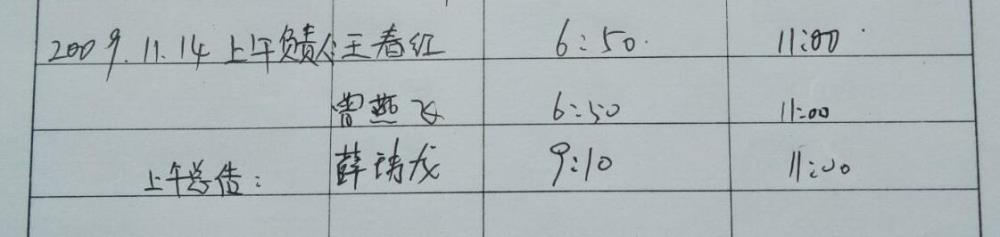 2009.11.14 上午负责人: 王春红 6:50. 11:00
曾燕飞 6:50 11:00
上午总值: 薛诗龙 9:10 11:00